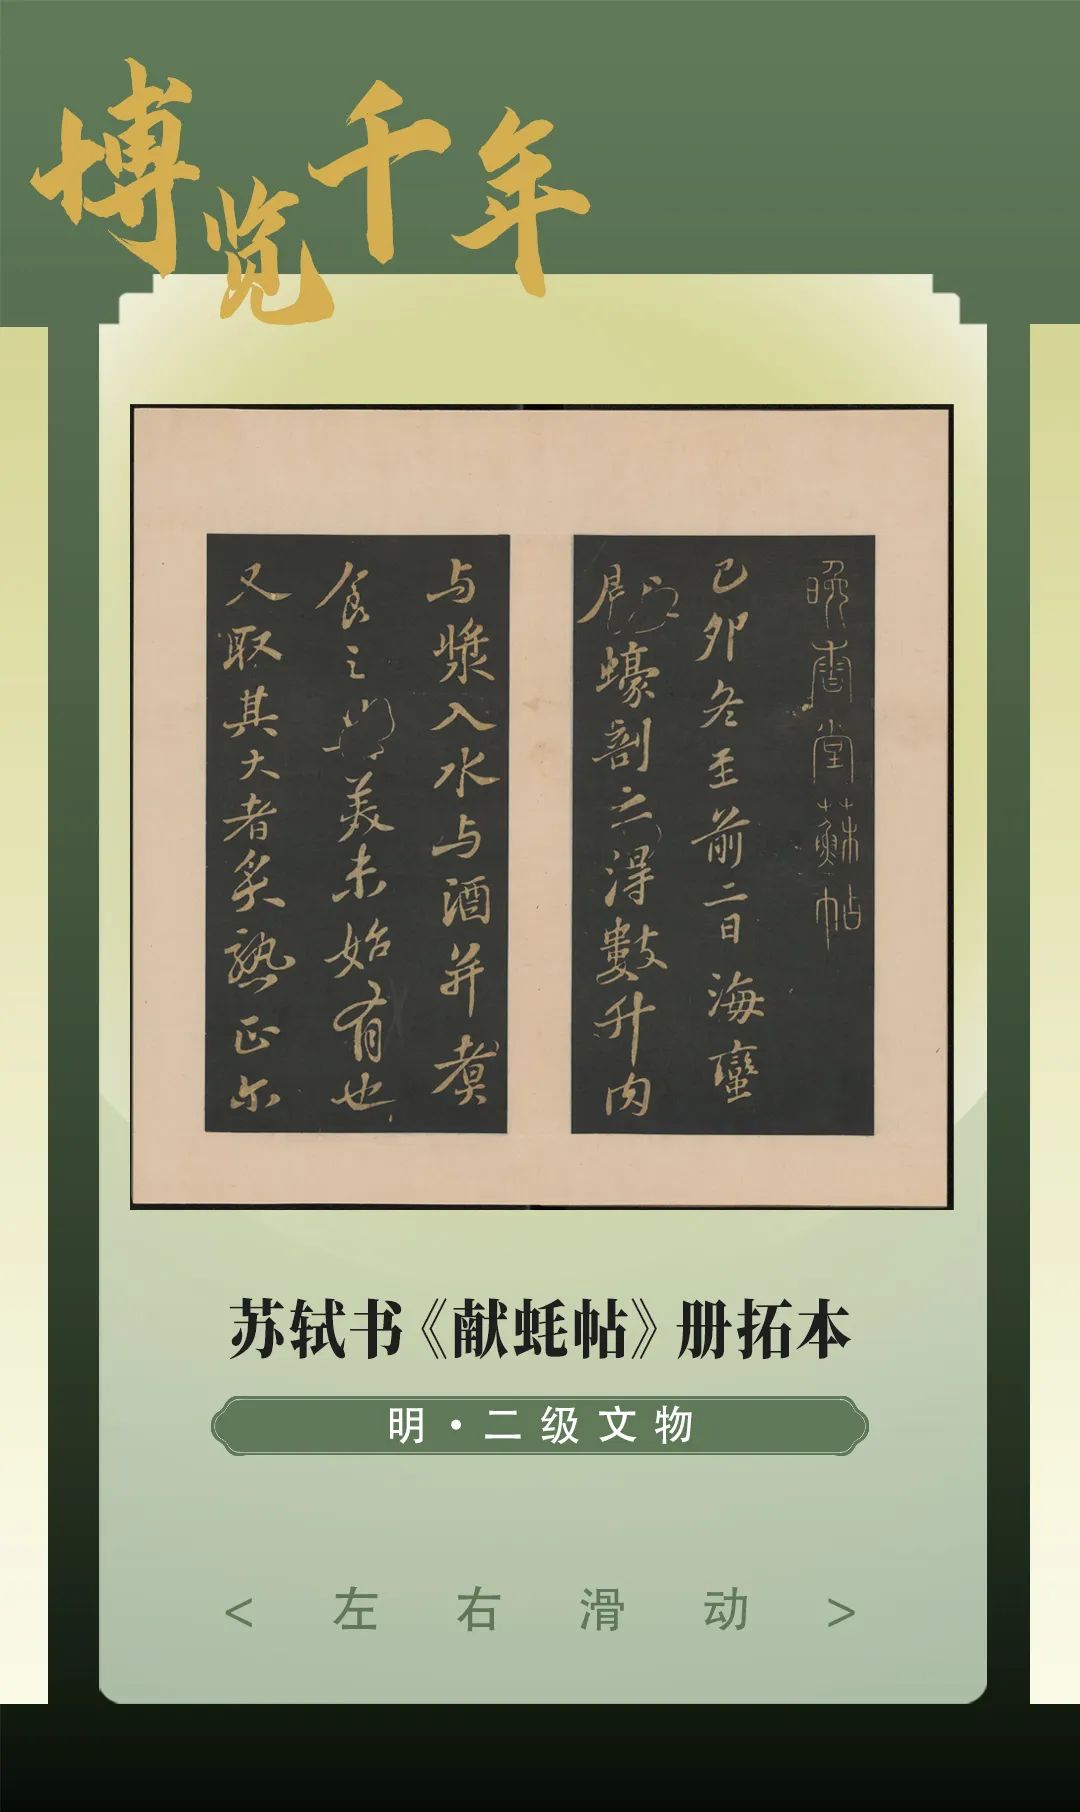 博览千年
晚香堂蘇帖
己卯冬至前二日海蠻
蠔剖之得數升肉
与漿入水与酒并煑
食之美未始有也
又取其大者炙熟正尔
苏轼书《献蚝帖》册拓本
明·二级文物
< 左右滑动 >